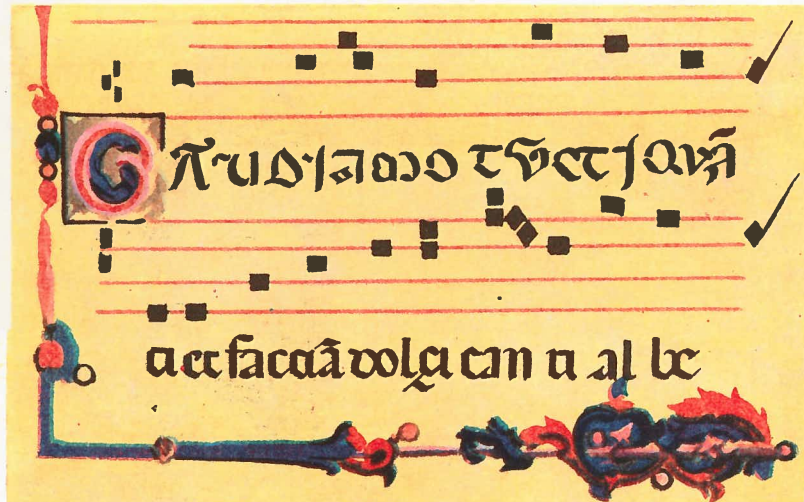 GAUDIAMO TUCTI QVÃ
ti et facciã dolçi can ti al be